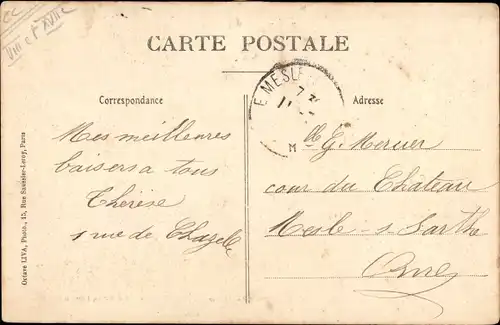 VIII et XVIIe
CARTE POSTALE
E MESLE
Correspondance
Adresse
Mes meilleures
baisers a tous
Thérèse
1 rue de
Mlle G. Mercier
cour du Château
Mesle-s-Sarthe
Orne
Octave LIVA, Photo., 15, Rue Saussier-Leroy, Paris